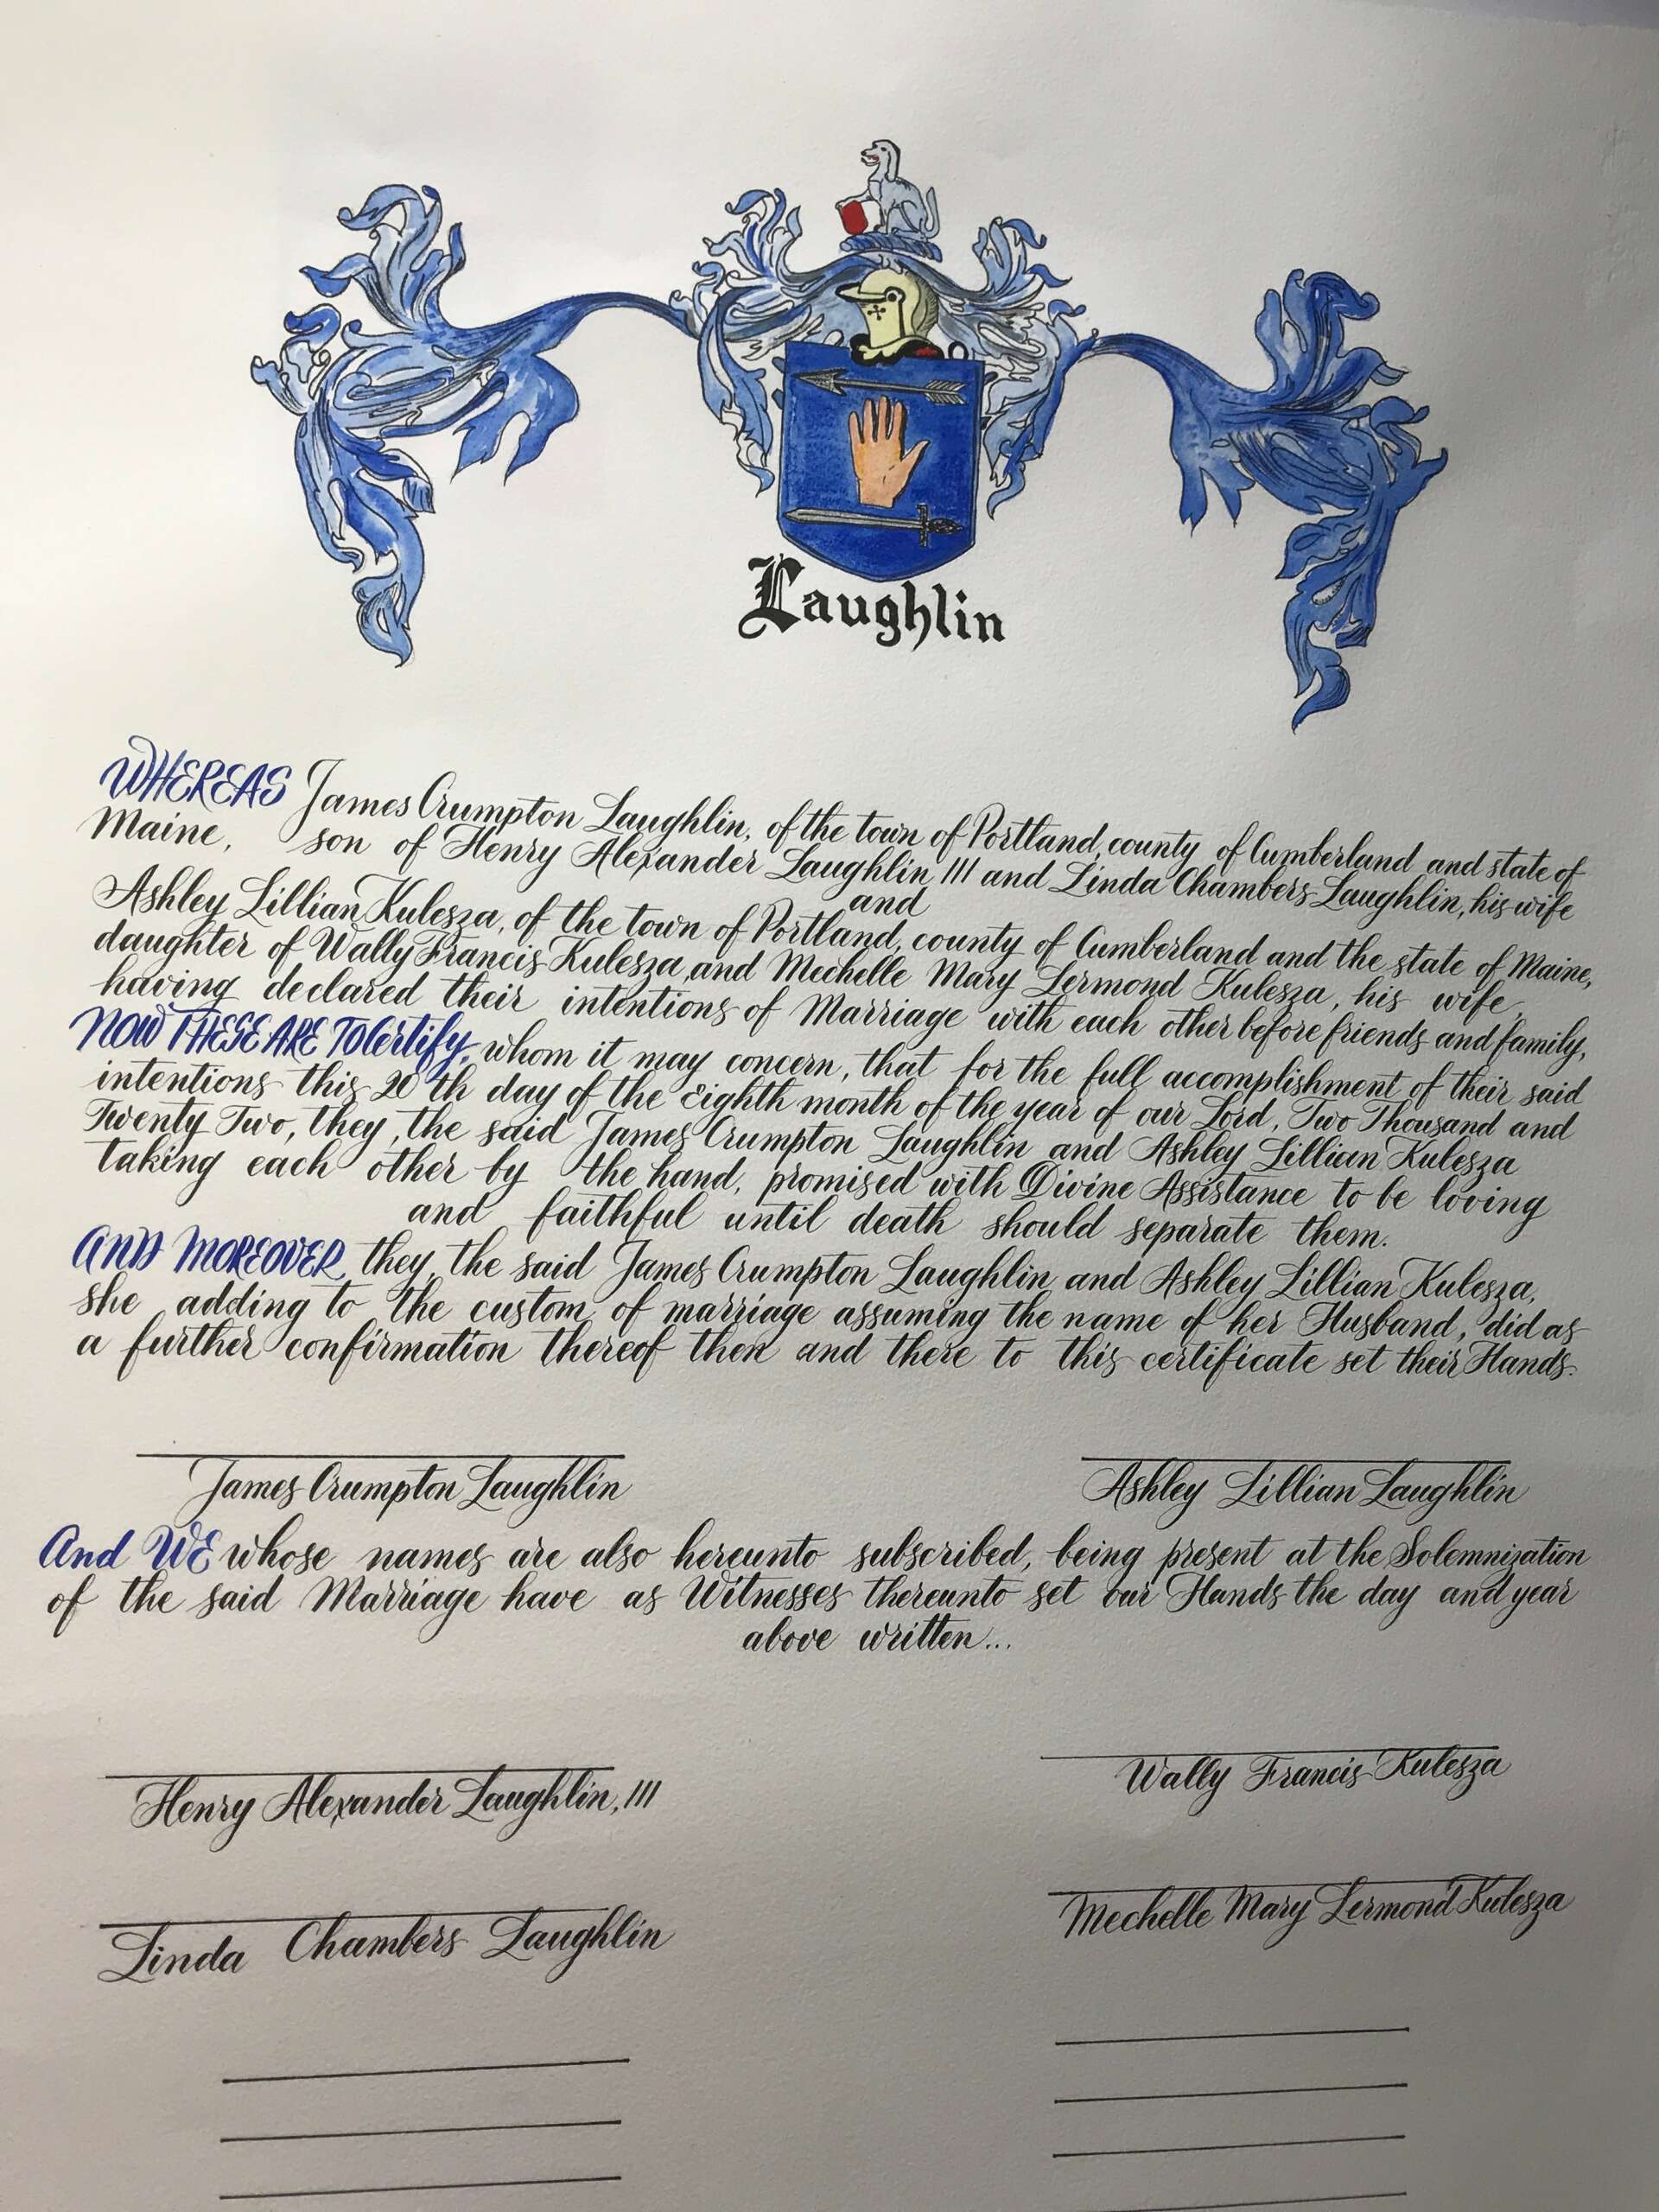 Laughlin
WHEREAS James Crumpton Laughlin, of the town of Portland, county of Cumberland and state of
Maine, son of Henry Alexander Laughlin III and Linda Chambers Laughlin, his wife
and
Ashley Lillian Kulesza, of the town of Portland, county of Cumberland and the state of Maine,
daughter of Wally Francis Kulesza and Mechelle Mary Lermond Kulesza, his wife,
having declared their intentions of Marriage with each other before friends and family,
NOW THESE ARE TO Certify, whom it may concern, that for the full accomplishment of their said
intentions this 20th day of the Eighth month of the year of our Lord, Two Thousand and
Twenty Two, they, the said James Crumpton Laughlin and Ashley Lillian Kulesza
taking each other by the hand, promised with Divine Assistance to be loving
and faithful until death should separate them.
AND MOREOVER, they, the said James Crumpton Laughlin and Ashley Lillian Kulesza,
she adding to the custom of marriage assuming the name of her Husband, did as
a further confirmation thereof then and there to this certificate set their Hands.
James Crumpton Laughlin
Ashley Lillian Laughlin
And WE whose names are also hereunto subscribed, being present at the Solemnization
of the said Marriage have as Witnesses thereunto set our Hands the day and year
above written...
Henry Alexander Laughlin, III
Wally Francis Kulesza
Linda Chambers Laughlin
Mechelle Mary Lermond Kulesza